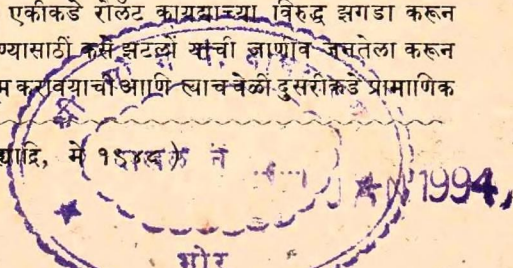 एकीकडे रोलॅट कायद्याच्या विरुद्ध झगडा करून
ण्यासाठीं कसे झटलों यांची जाणीव जनतेला करून
म करावयाची आणि त्याच वेळीं दुसरीकडे प्रामाणिक
ह्याद्रि, मे
1994,
भोर